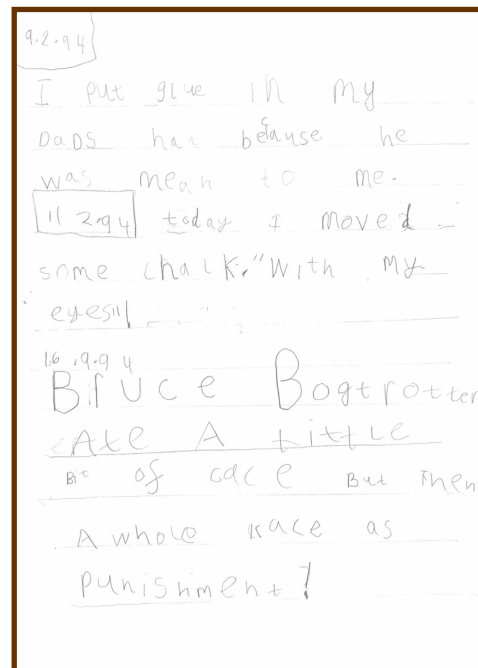 9.2.94
I put glue in my
DaDS hat because he
was mean to me.
11 2.94 today I moved
some chalk."With my
eyes"!
16.9.94
Bruce Bogtrotter
Ate A little
Bit of cace But Then
A whole kace as
punishment!